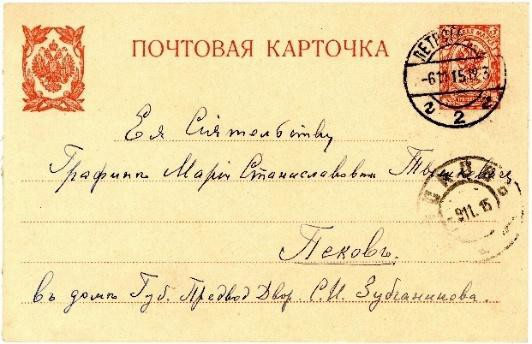 ПОЧТОВАЯ КАРТОЧКА
ПЕТРОГРАДЪ
-6 11 15
2 2 2
Ея Сіятельству
Графинѣ Маріи Станиславовнѣ
Псковъ.
въ домѣ Губ. Предвод Двор. С. И. Зубчанинова.
911. 15